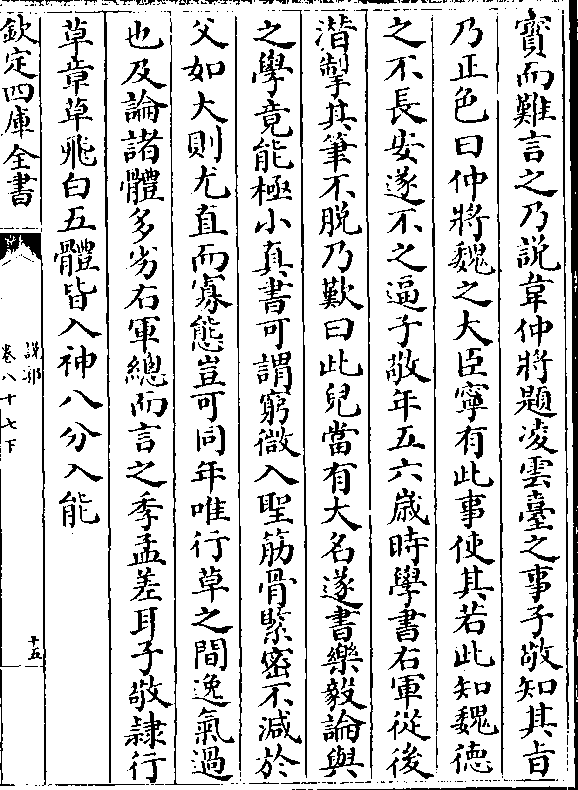 寳而難言之乃説韋仲將題凌雲臺之事子敬知其㫖
乃正色曰仲將魏之大臣寧有此事使其若此知魏德
之不長安遂不之逼子敬年五六歳時學書右軍從後
潛掣其筆不脱乃歎曰此兒當有大名遂書樂毅論與
之學竟能極小真書可謂窮微入聖筋骨緊密不減於
父如大則尤直而寡態豈可同年唯行草之間逸氣過
也及論諸體多劣右軍總而言之季孟差耳子敬隸行
草章草飛白五體皆入神八分入能
欽定四庫全書
說郛
卷八十七下
十五